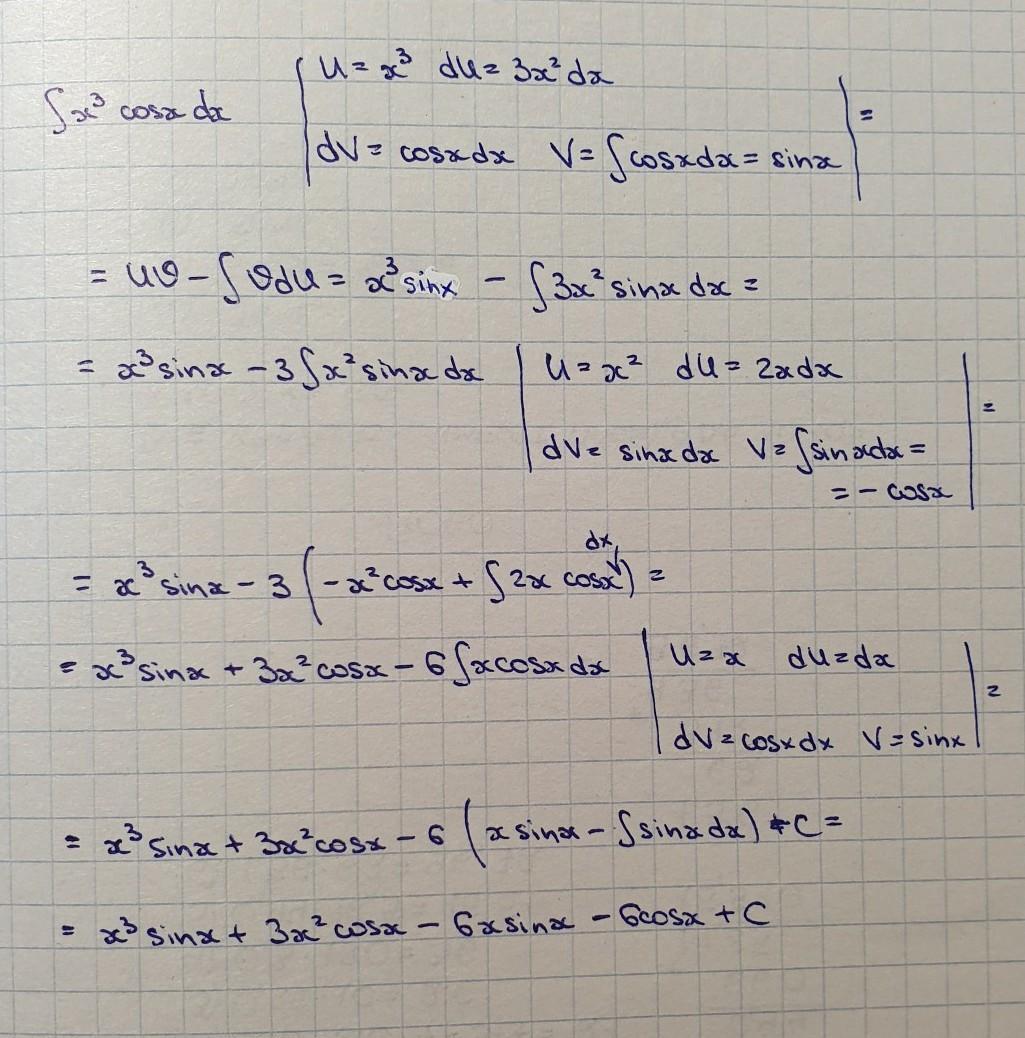 ∫x³ cosx dx | U = x³ dU = 3x² dx
dV = cosx dx V = ∫cosx dx = sinx | =
= Uϑ − ∫ϑdU = x³ sinx − ∫3x² sinx dx =
= x³ sinx − 3∫x² sinx dx | U = x² dU = 2x dx
dV = sinx dx V = ∫sinx dx = | =
= − cosx
dx
= x³ sinx − 3(−x² cosx + ∫2x cosx) =
= x³ sinx + 3x² cosx − 6∫x cosx dx | U = x dU = dx
dV = cosx dx V = sinx | =
= x³ sinx + 3x² cosx − 6(x sinx − ∫sinx dx) + C =
= x³ sinx + 3x² cosx − 6x sinx − 6cosx + C